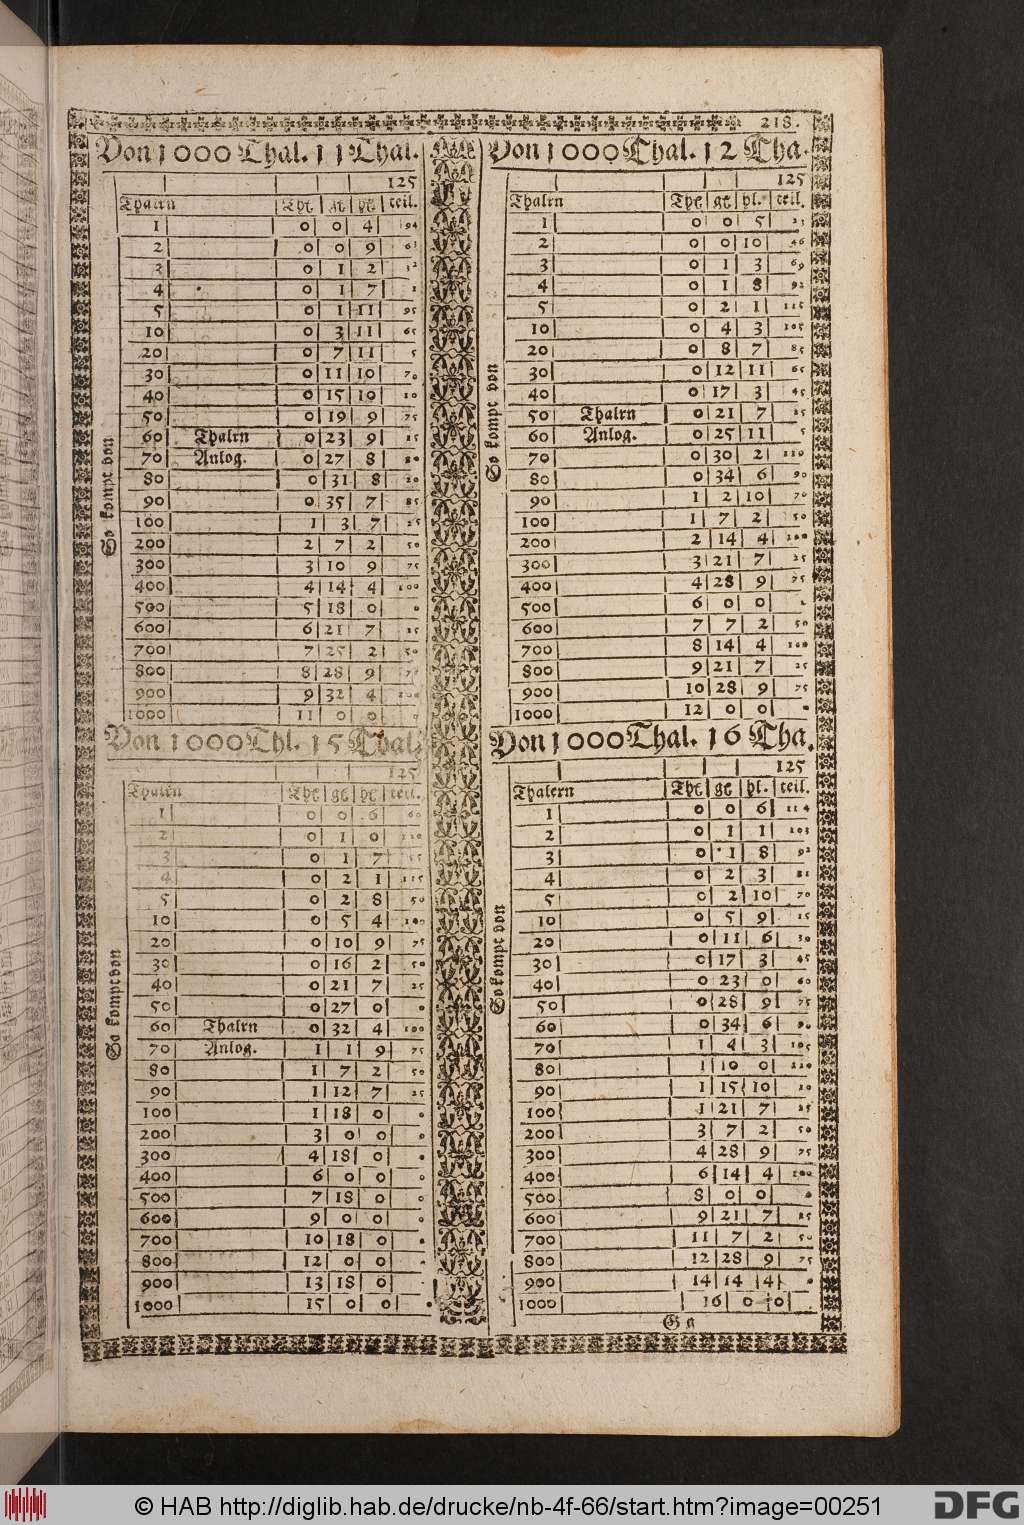 218.
Von 1000 Thal. 11 Thal.
125
Thalrn | Thl | gl | hl | teil.
1 | 0 | 0 | 4 | 94
2 | 0 | 0 | 9 | 63
3 | 0 | 1 | 2 | 32
4 | 0 | 1 | 7 | 1
5 | 0 | 1 | 11 | 95
10 | 0 | 3 | 11 | 65
20 | 0 | 7 | 11 | 5
30 | 0 | 11 | 10 | 70
40 | 0 | 15 | 10 | 10
50 | 0 | 19 | 9 | 75
60 | Thalrn | 0 | 23 | 9 | 15
70 | Anlog. | 0 | 27 | 8 | 80
80 | 0 | 31 | 8 | 20
90 | 0 | 35 | 7 | 85
100 | 1 | 3 | 7 | 25
200 | 2 | 7 | 2 | 50
300 | 3 | 10 | 9 | 75
400 | 4 | 14 | 4 | 100
500 | 5 | 18 | 0 | 0
600 | 6 | 21 | 7 | 25
700 | 7 | 25 | 2 | 50
800 | 8 | 28 | 9 | 75
900 | 9 | 32 | 4 | 100
1000 | 11 | 0 | 0 | 0
So kompt von
Von 1000 Thal. 12 Tha.
125
Thalrn | Thl | gl | hl. | teil.
1 | 0 | 0 | 5 | 23
2 | 0 | 0 | 10 | 46
3 | 0 | 1 | 3 | 69
4 | 0 | 1 | 8 | 92
5 | 0 | 2 | 1 | 115
10 | 0 | 4 | 3 | 105
20 | 0 | 8 | 7 | 85
30 | 0 | 12 | 11 | 65
40 | 0 | 17 | 3 | 45
50 | Thalrn | 0 | 21 | 7 | 25
60 | Anlog. | 0 | 25 | 11 | 5
70 | 0 | 30 | 2 | 110
80 | 0 | 34 | 6 | 90
90 | 1 | 2 | 10 | 70
100 | 1 | 7 | 2 | 50
200 | 2 | 14 | 4 | 100
300 | 3 | 21 | 7 | 25
400 | 4 | 28 | 9 | 75
500 | 6 | 0 | 0
600 | 7 | 7 | 2 | 50
700 | 8 | 14 | 4 | 100
800 | 9 | 21 | 7 | 25
900 | 10 | 28 | 9 | 75
1000 | 12 | 0 | 0 | 0
So kompt von
Von 1000 Thl. 15 Thal.
125
Thalrn | Thl | gl | hl | teil.
1 | 0 | 0 | 6 | 60
2 | 0 | 1 | 0 | 120
3 | 0 | 1 | 7 | 55
4 | 0 | 2 | 1 | 115
5 | 0 | 2 | 8 | 50
10 | 0 | 5 | 4 | 100
20 | 0 | 10 | 9 | 75
30 | 0 | 16 | 2 | 50
40 | 0 | 21 | 7 | 25
50 | 0 | 27 | 0 | 0
60 | Thalrn | 0 | 32 | 4 | 100
70 | Anlog. | 1 | 1 | 9 | 75
80 | 1 | 7 | 2 | 50
90 | 1 | 12 | 7 | 25
100 | 1 | 18 | 0 | 0
200 | 3 | 0 | 0 | 0
300 | 4 | 18 | 0 | 0
400 | 6 | 0 | 0 | 0
500 | 7 | 18 | 0 | 0
600 | 9 | 0 | 0 | 0
700 | 10 | 18 | 0 | 0
800 | 12 | 0 | 0
900 | 13 | 18 | 0
1000 | 15 | 0 | 0
So kompt von
Von 1000 Thal. 16 Tha.
125
Thalern | Thl | gl | hl. | teil.
1 | 0 | 0 | 6 | 114
2 | 0 | 1 | 1 | 103
3 | 0 | 1 | 8 | 92
4 | 0 | 2 | 3 | 81
5 | 0 | 2 | 10 | 70
10 | 0 | 5 | 9 | 15
20 | 0 | 11 | 6 | 30
30 | 0 | 17 | 3 | 45
40 | 0 | 23 | 0 | 60
50 | 0 | 28 | 9 | 75
60 | 0 | 34 | 6 | 90
70 | 1 | 4 | 3 | 105
80 | 1 | 10 | 0 | 120
90 | 1 | 15 | 10 | 10
100 | 1 | 21 | 7 | 25
200 | 3 | 7 | 2 | 50
300 | 4 | 28 | 9 | 75
400 | 6 | 14 | 4 | 100
500 | 8 | 0 | 0 | 0
600 | 9 | 21 | 7 | 25
700 | 11 | 7 | 2 | 50
800 | 12 | 28 | 9 | 75
900 | 14 | 14 | 4
1000 | 16 | 0 | 0
So kompt von
© HAB http://diglib.hab.de/drucke/nb-4f-66/start.htm?image=00251
DFG